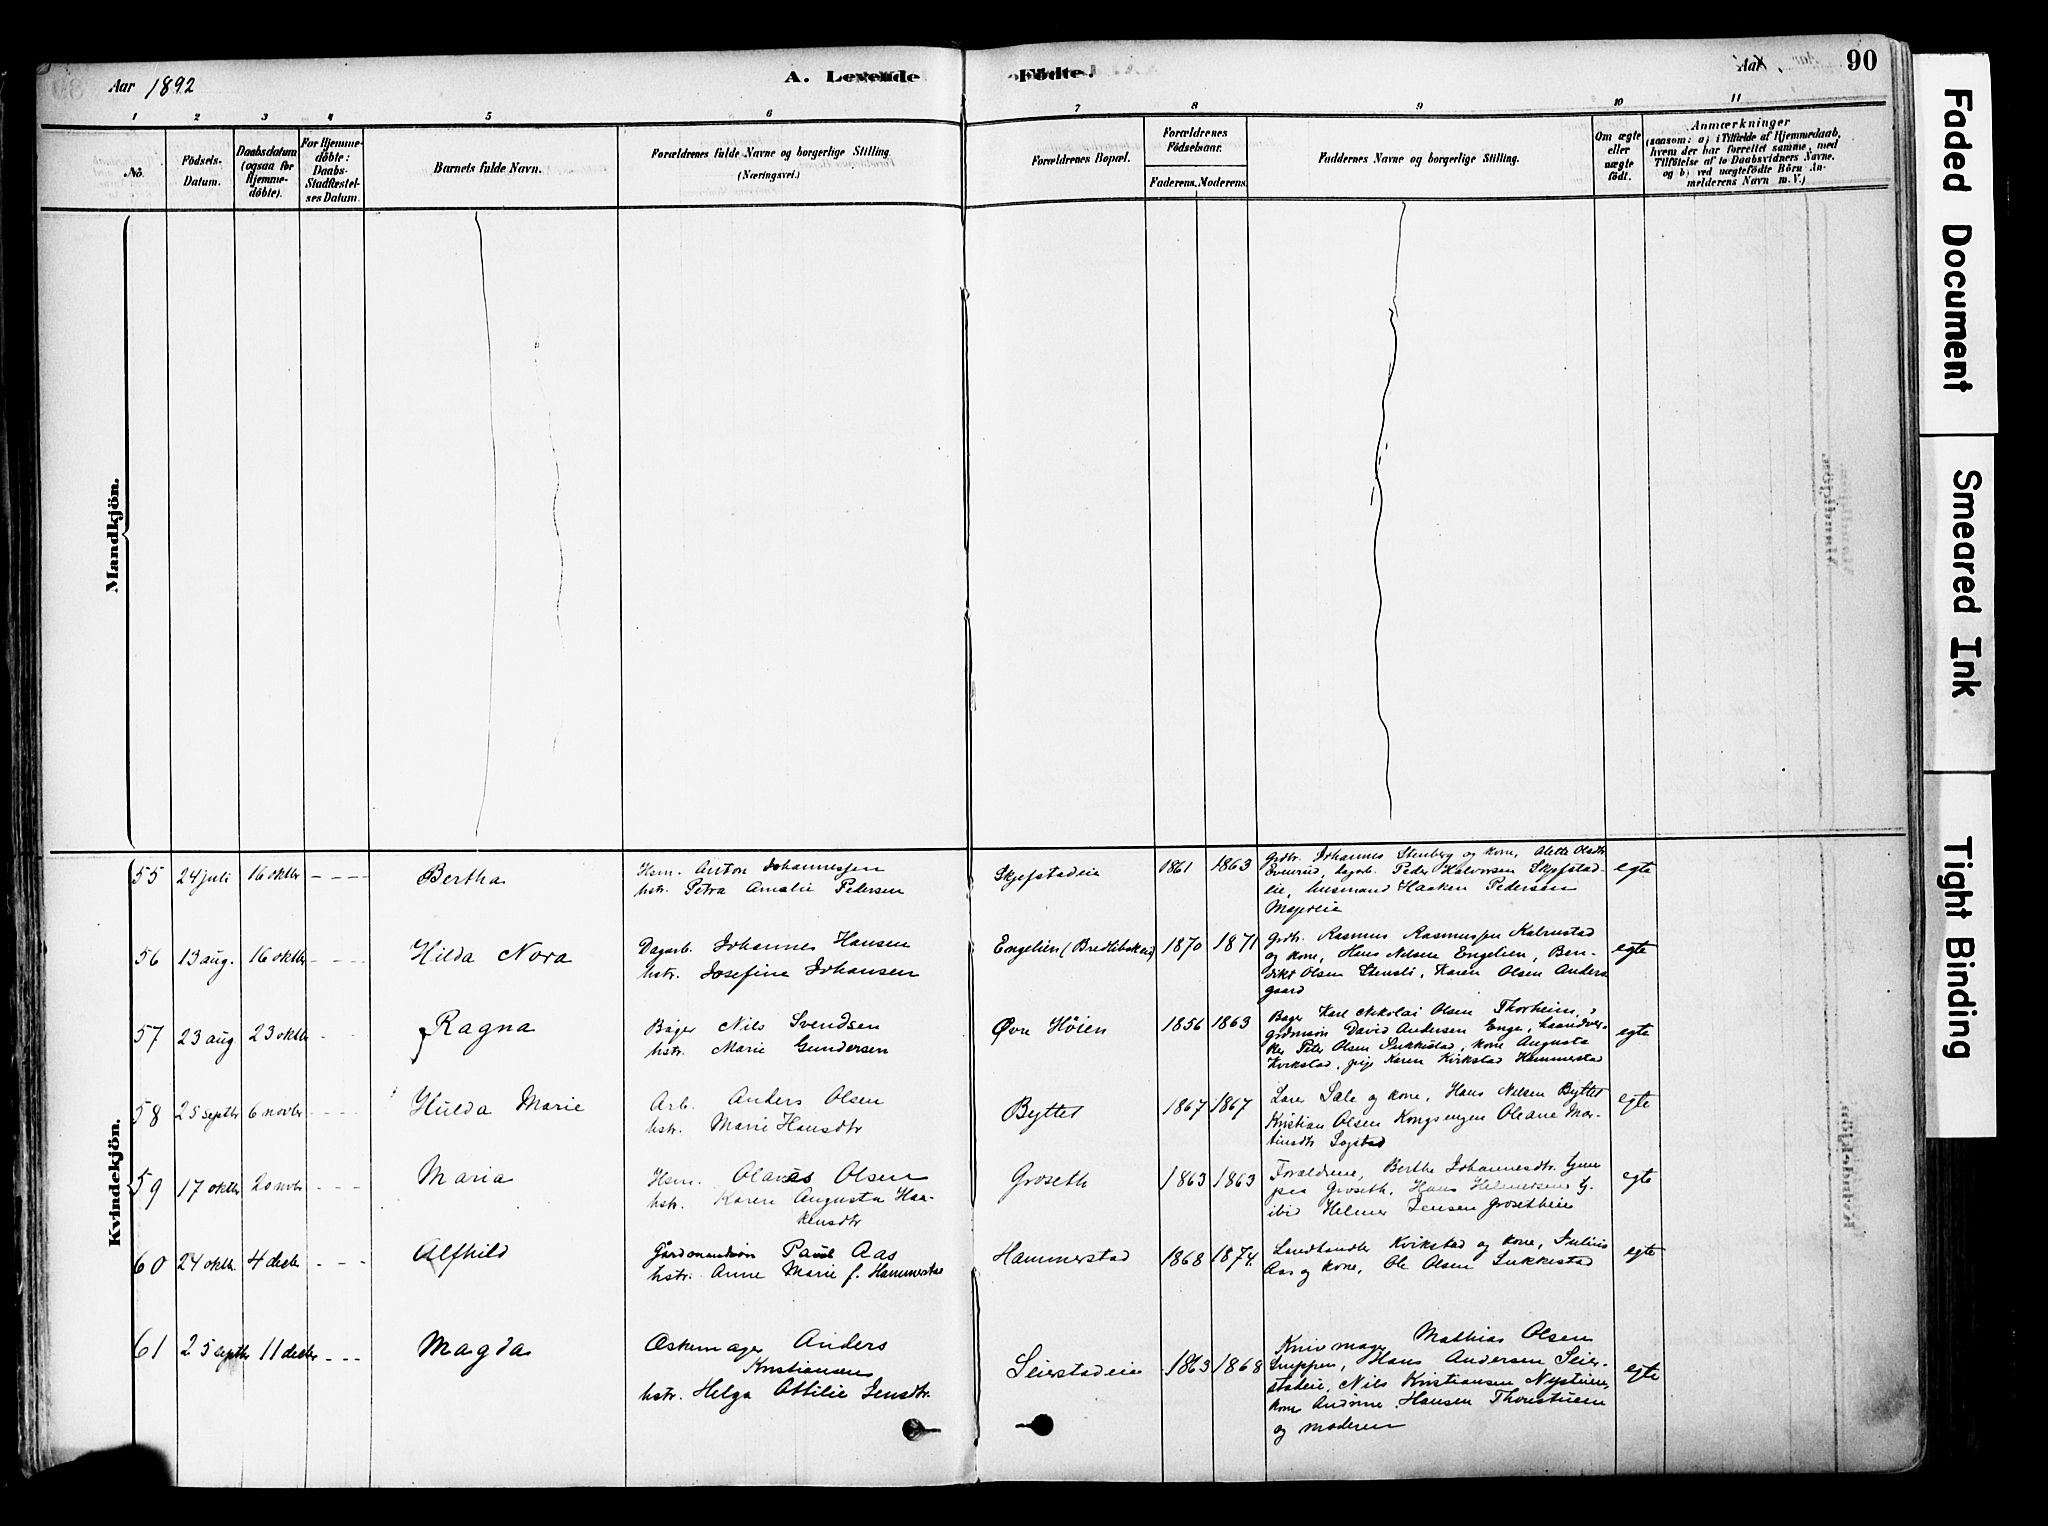 Aar 1892
A. Levende
Fødte.
Aar
90
1 2 3 4 5 6 7 8 9 10 11
No.
Födsels-
Datum.
Daabsdatum
(ogsaa for
Hjemme-
døbte).
For Hjemme-
døbte:
Daabs-
Stadfæstel-
ses Datum.
Barnets fulde Navn.
Forældrenes fulde Navne og borgerlige Stilling.
(Næringsvei.)
Forældrenes Bopæl.
Forældrenes
Fødselsaar.
Faderens. Moderens.
Faddernes Navne og borgerlige Stilling.
Om ægte
eller
uægte
født.
Anmærkninger
(saasom: a) i Tilfælde af Hjemmedaab,
hvem der har forrettet samme, med
Tilföielse af to Daabsvidners Navne.
og b) ved uægtefødte Börn An-
melderens Navn m. V.)
Mandkjön.
Kvindekjön.
55 24 juli 16 oktbr - - - - Bertha
Hsm. Anton Johannessen
hstr. Petra Amalie Pedersen
Skjefstadeie 1861 1863
Grdbr. Johannes Stenberg og kone, Alette Olsdtr
Evenrud, Peder Halvorsen Skjefstad-
eie, husmand Haaken Pedersen
egte
56 13 aug. 16 oktbr - - - - Hilda Nora
Dagarb. Johannes Hansen
hstr. Josefine Johansen
Engelien 1870 1871
Grdbr. Rasmus Rasmussen
og kone, Hans Nilsen Engelien, Ben-
dikt Olsen Stensli, Karen Olsen Anders
gaard
egte
57 23 aug 23 oktbr - - Ragna
Bager Nils Svendsen
hstr. Marie Gundersen
Øvre Höien 1856 1863
Bager Karl Nikolai Olsen Thorheim,
grdmsön David Andersen Enge, haandver-
ker Peter Olsen Sukkestad, kone Augusta
Kvikstad, pige Karen Kirkstad Hammerstad
egte
58 25 septbr 6 novbr - - - - Hulda Marie
Arb. Anders Olsen
hstr. Marie Hansdtr
Byttet 1867 1867
Lars Sale og kone, Hans Nilsen Byttet
Kristian Olsen Kongsengen Oleane Mar-
tinsdtr Sogstad
egte
59 17 oktbr 20 novbr - - - - Maria
Hsm. Olaves Olsen
hstr. Karen Augusta Haa-
kensdtr
Groseth 1863 1863
Forældrene, Berthe Johannesdtr
pia Groseth, Hans Helmersen
ibid Helmer Jensen Grosetheie
egte
60 24 oktbr. 4 decbr - - - Alfhild
Gårdmandsön Paul Aas
hstr. Anne Marie f. Hammerstad
Hammerstad 1868 1874.
Landhandler Kvikstad og kone, Julius
Aas og kone, Ole Olsen Sukkestad
egte
61 25 septbr 11 decbr - - - Magda
Æskemager Anders
Kristiansen
hstr. Helga Attilie Jensdtr.
Seierstadeie 1863 1868
Knivmager Mathias Olsen
Snippen, Hans Andersen Seier-
stadeie, Nils Kristiansen Nystuen,
kone Andrine Hansen Thorestuen
og moderen
egte
Faded Document
Smeared Ink
Tight Binding